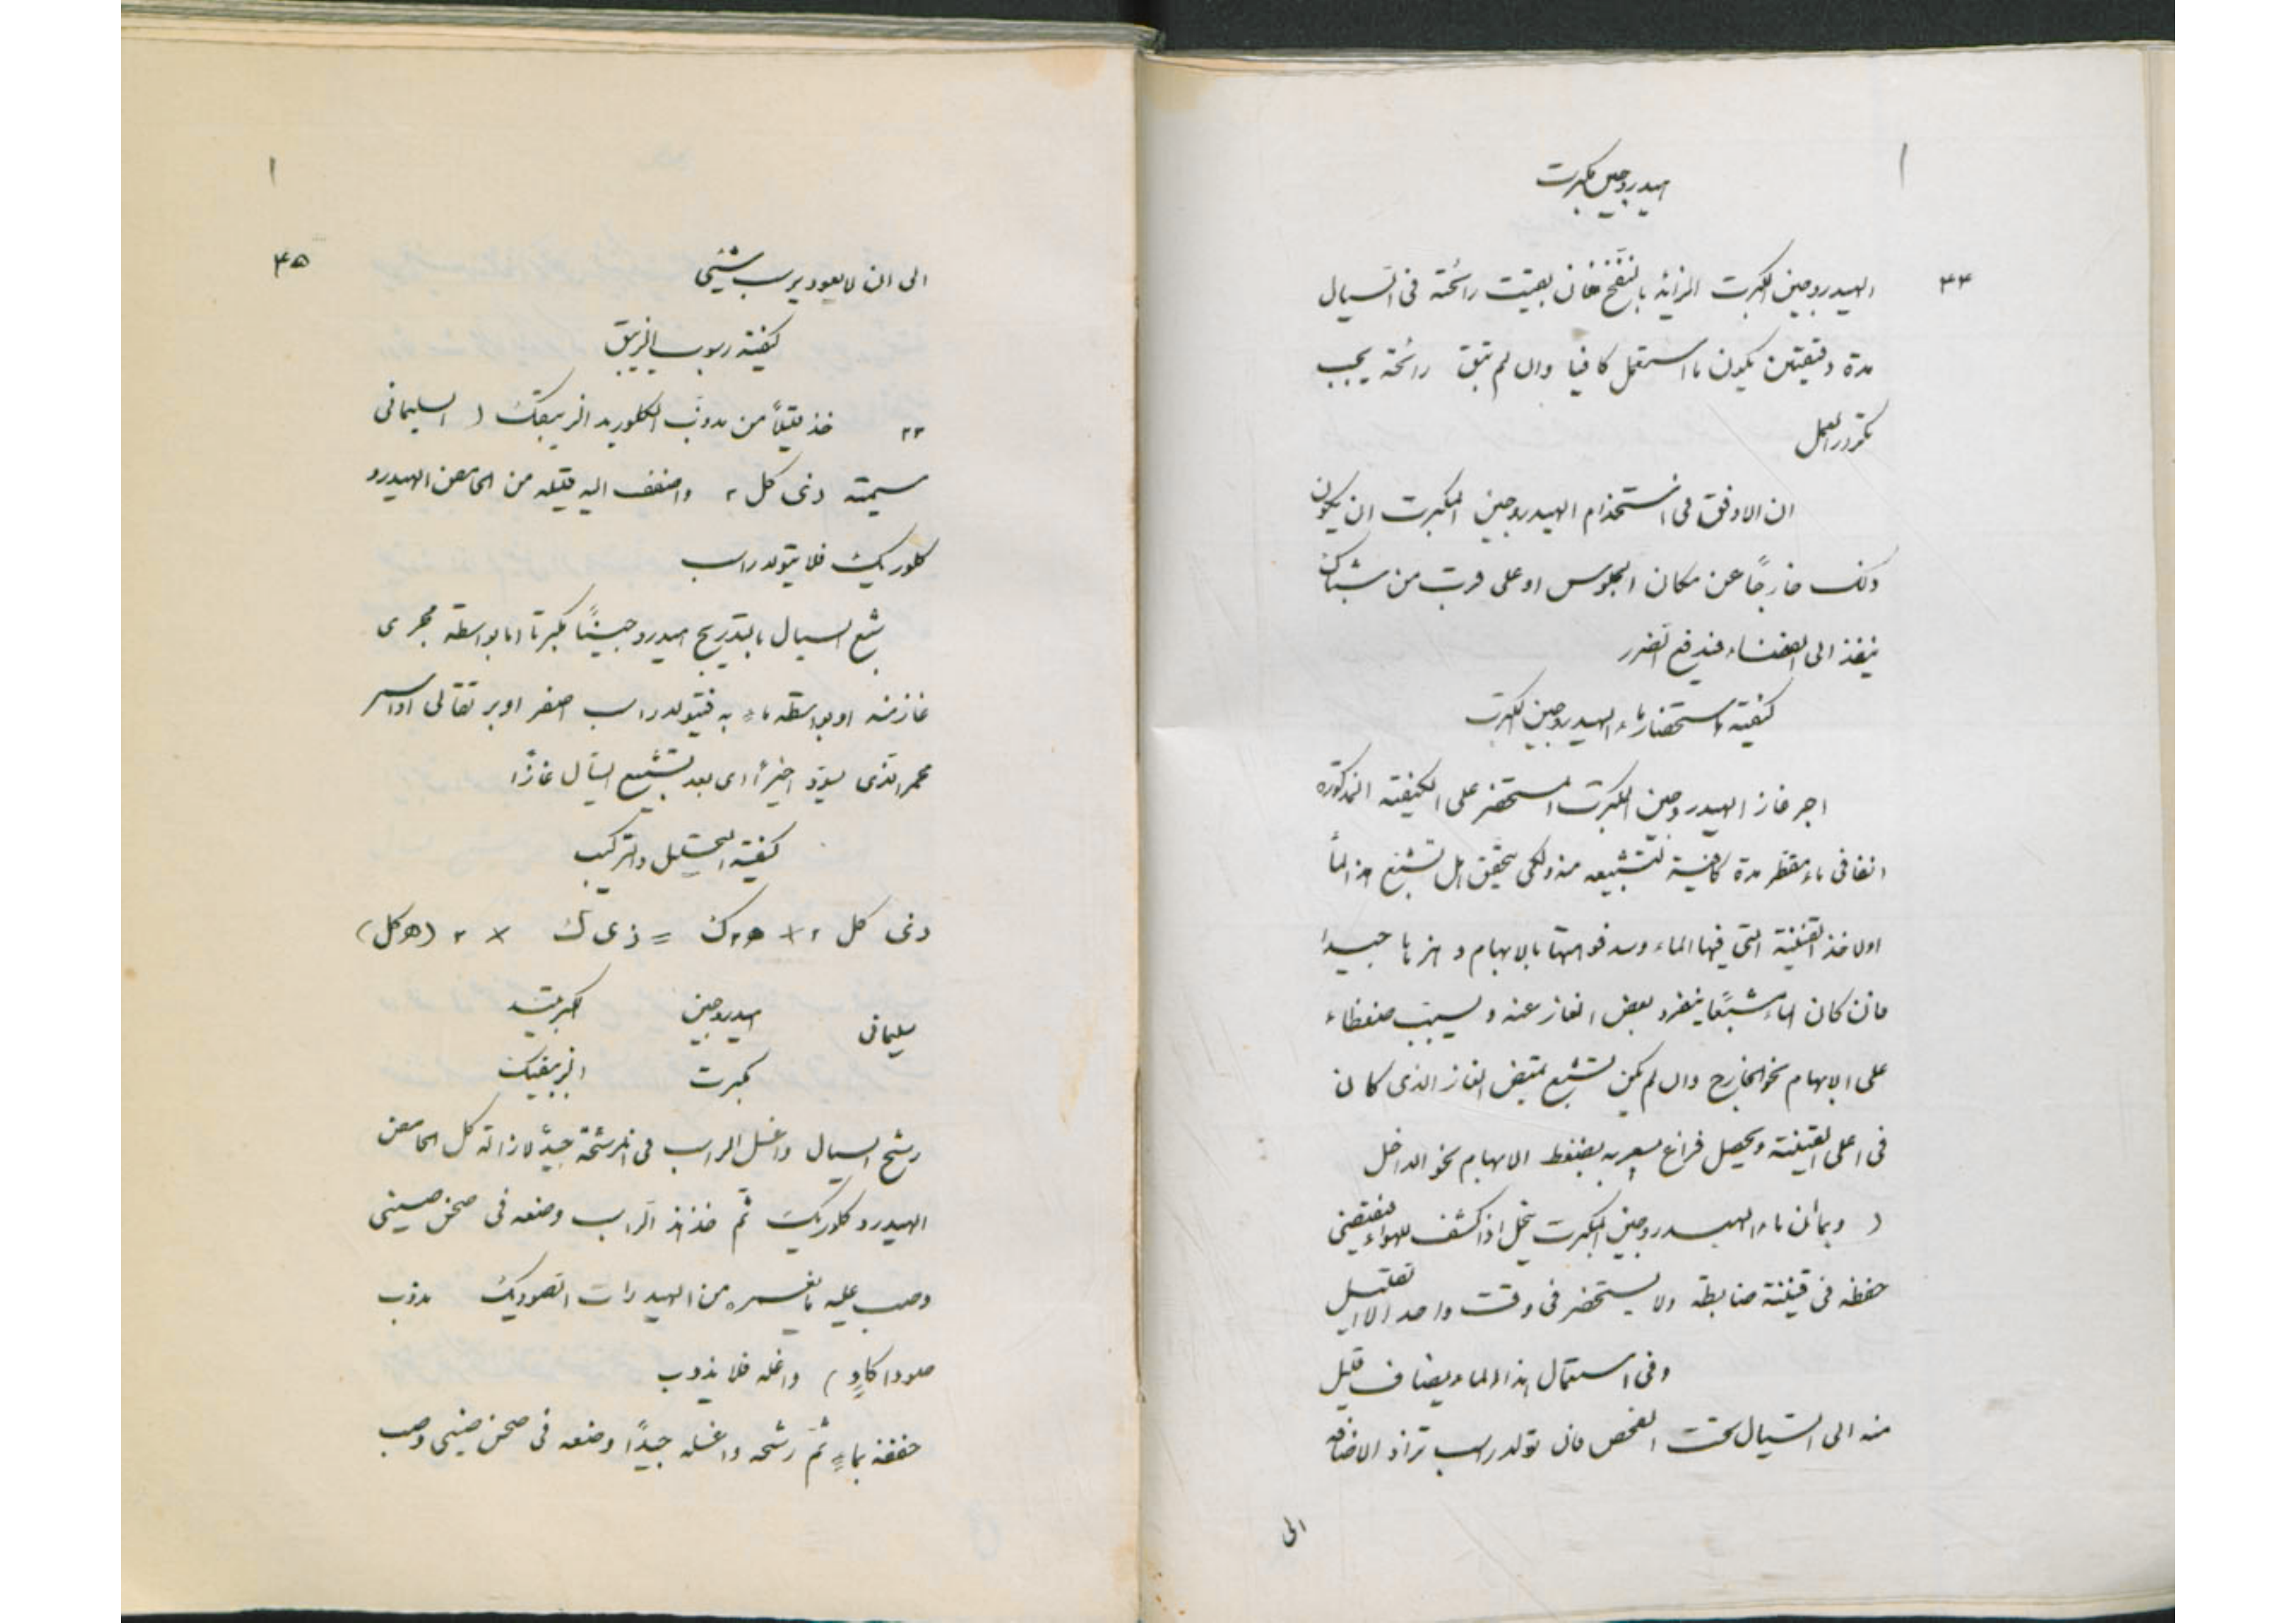 هيدروجين مكبرت
٤٤
الهيدروجين المكبرت الزائد بالنفخ فان بقيت رائحته فى السيال
مدة دقيقتين يكون ما استعمل كافيا وان لم تبق رائحة يجب
تكرر العمل
ان الاوفق فى استخدام الهيدروجين المكبرت ان يكون
ذلك خارجًا عن مكان الجلوس او على قرب من شباك
ينفذ الى الفضاء فيندفع الضرر
كيفية استحضار ماء الهيدروجين المكبرت
اجر غاز الهيدروجين المكبرت المستحضر على الكيفية المذكورة
انفا فى ماء مقطر مدة كافية لتشبيعه منه ولكى تتحقق هل تشبع هذا الماء
اولا خذ القنينة التى فيها الماء وسد فوهتها بالابهام وهزها جيدا
فان كان الماء مشبعًا ينفرد بعض الغاز عنه ويسبب ضغطاء
على الابهام نحو الخارج وان لم يكن تشبع يمتص الغاز الذى كان
فى اعلى القنينة ويحصل فراغ بسببه يضغط الابهام نحو الداخل
( وبما ان ماء الهيدروجين المكبرت ينحل اذا كشف للهواء فيقتضى
حفظه فى قنينة ضابطة ولا يستحضر فى وقت واحد الا القليل
وفى استعمال هذا الماء يضاف قليل
منه الى السيال تحت الفحص فان تولد راسب تزاد الاضافه
الى
٤٥
الى ان لا يعود يرسب شيئى
كيفية رسوب الزيبق
٢٣ خذ قليلاً من مذوّب الكلوريد الزيبقيك ( السليمانى
سيمته ذى كل ٢ واضف اليه قليله من الحامض الهيدرو
كلوريك فلا يتولد راسب
شبع السيال بالتدريج هيدروجينًا مكبرتا اما بواسطة مجرى
غاز منه او بواسطة ماءٍ به فيتولد راسب اصفر او برتقالى او اسمر
محمر الذى يسودّ اخيرًا اى بعد تشبيع السيال غازًا
كيفية التحليل والتركيب
ذى كل ٢ + ه٢ ك = ذى ك + ٢ (ه كل)
سليمانى هيدروجين كبريتيد
مكبرت الزيبقيك
رشح السيال واغسل الراسب فى المرشحة جيدًا لازالة كل الحامض
الهيدروكلوريك ثم خذ هذا الراسب وضعه فى صحن صينى
وصب عليه ما يغمره من الهيدرات الصوديك مذوب
صودا كاوٍ ) واغله فلا يذوب
خففه بماءٍ ثمّ رشحه واغسله جيدًا وضعه فى صحن صينى وصب